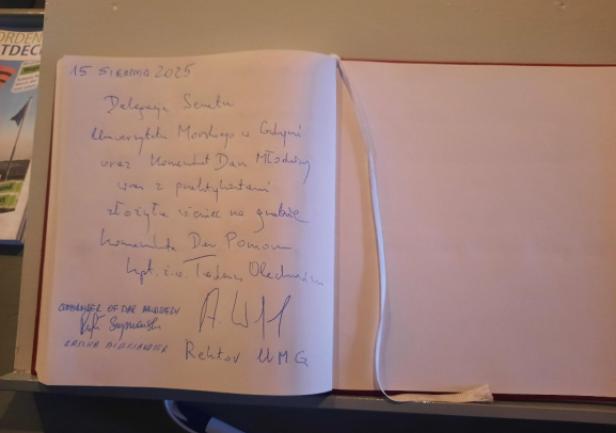 ORDEN
TDECK
15 SIERPNIA 2025
Delegacja Senatu
Uniwersytetu Morskiego w Gdyni
oraz Komendant Daru Młodzieży
wraz z praktykantami
złożyła wieniec na grobie
Komendanta Daru Pomorza
kpt. ż.w. Tadeusza Olechnowicza
COMMANDER OF DAR MŁODZIEŻY
Rektor UMG